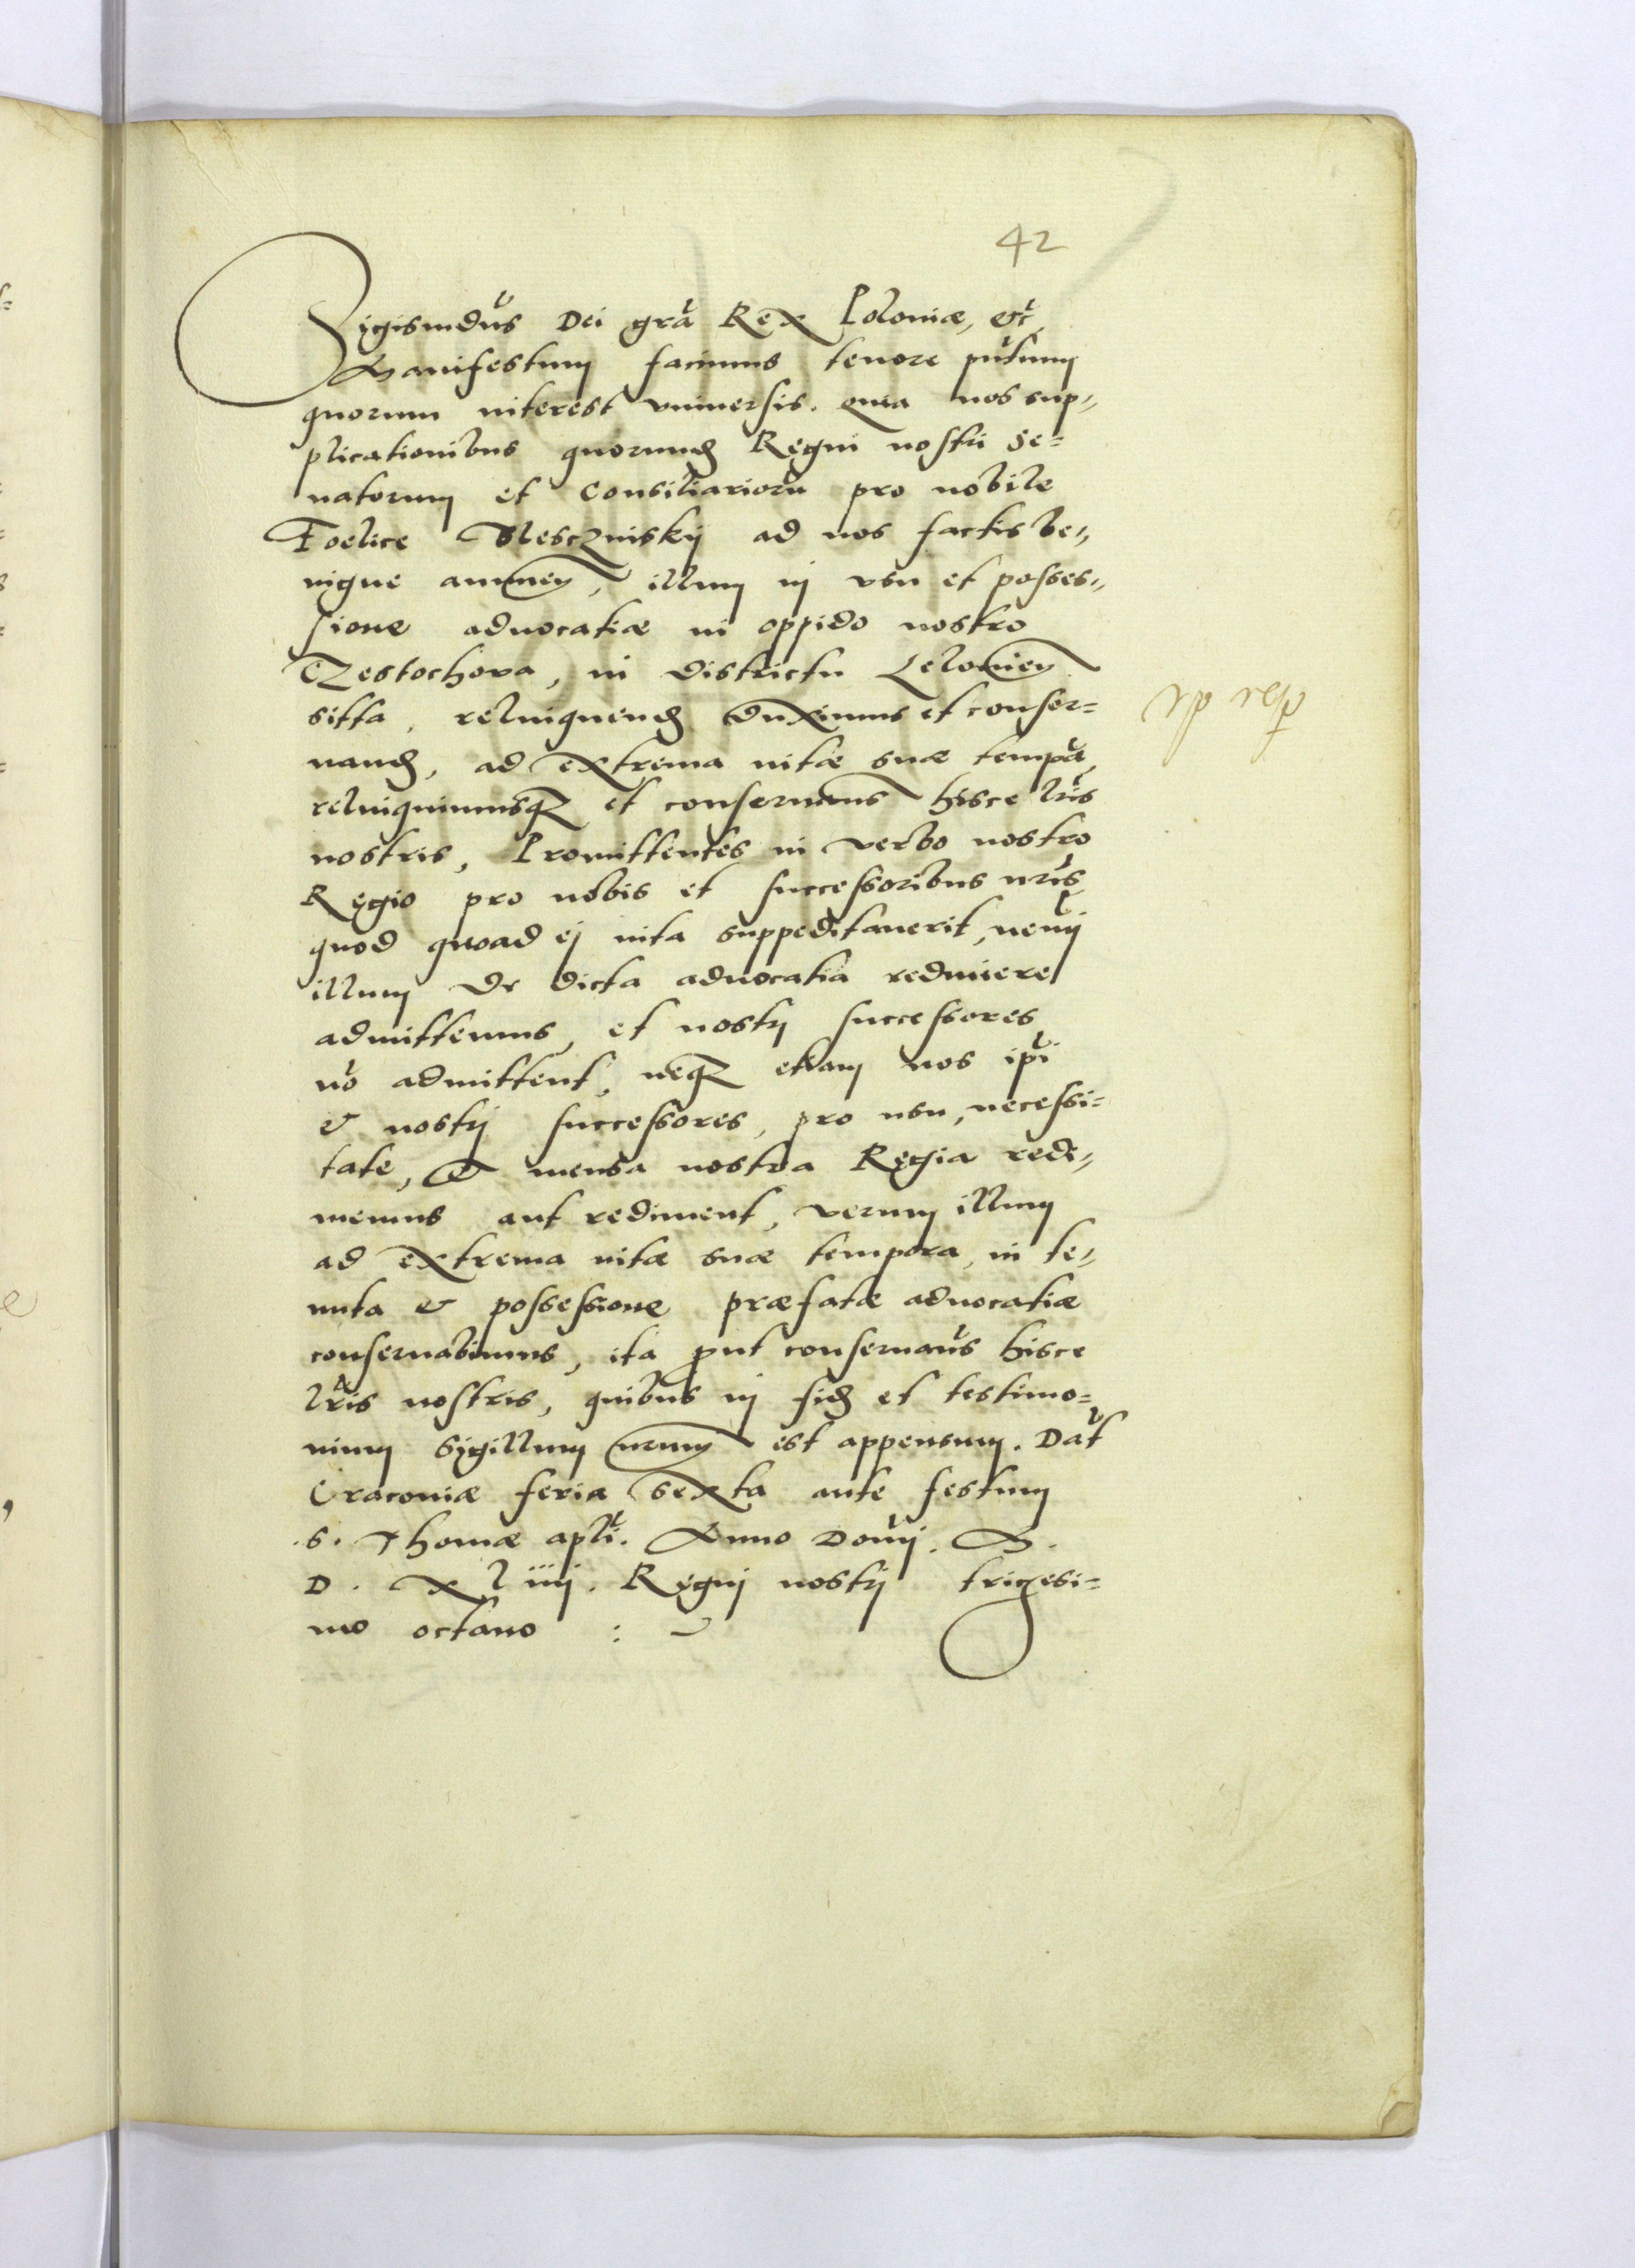 42
Sigismdus Dei gra Rex Poloniæ, etc
Manifestum facimus tenore pntium
quorum interest vniuersis. quia nos sup=
plicationibus quorund Regni nostri Se=
natorum et Consiliarioru pro nobile
Foelice Blesczniskij ad nos factis be=
nigne annuen, illum in vsu et posses=
sione aduocatiæ in oppido nostro
Czestochova, in districtu Lelouien
sitta, relinquend duximus et conser=
uand, ad extrema uitæ suæ tempa,
relinquimusq et conseruamus hisce lris
nostris, Promittentes in verbo nostro
Regio pro nobis et successoribus nris
quod quoad ej uita suppeditauerit, nemi
illum de dicta aduocatia redimere
admittemus, et nostrj successores
no admittent, neq etiam nos ipi
& nostrj successores, pro usu, necessi=
tate, & mensa nostra Regia redi=
memus aut rediment, verum illum
ad extrema uitæ suæ tempora, in te=
nuta & possessione præfatæ aduocatiæ
conseruabimus, ita put conseruaus hisce
lris nostris, quibus in fid et testimo=
nium sigillum nrum est appensum. Dat
Cracouiæ feria sexta ante festum
.S. Thomæ apli. Anno Domj. M.
D. xliiij. Regnj nostrj tricesi=
mo octauo :